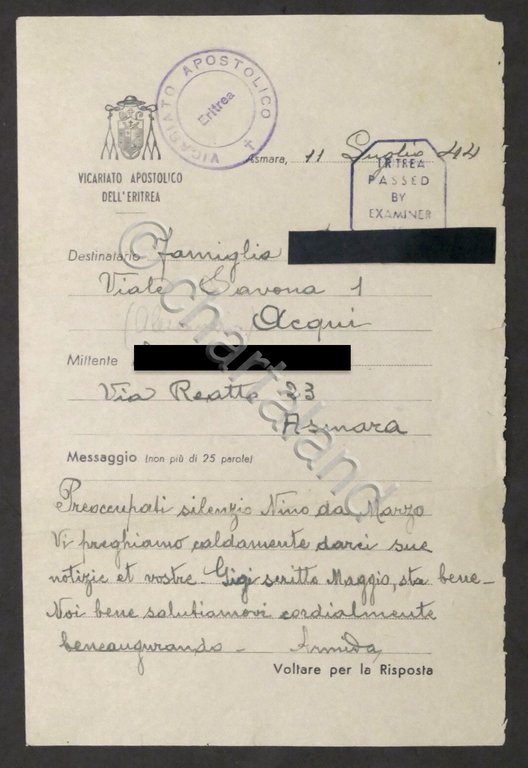 VICARIATO APOSTOLICO
Eritrea
VICARIATO APOSTOLICO
DELL'ERITREA
Asmara, 11 Luglio 44
ERITREA
PASSED
BY
EXAMINER
Destinatario Famiglia
Viale Savona 1
Acqui
Mittente
Via Reatto 23
Asmara
Messaggio (non più di 25 parole)
Preoccupati silenzio Nino da Marzo
Vi preghiamo caldamente darci sue
notizie et vostre. Gigi scritto Maggio, sta bene-
Noi bene salutiamovi cordialmente
beneaugurando - Armida
Voltare per la Risposta
© chartaland